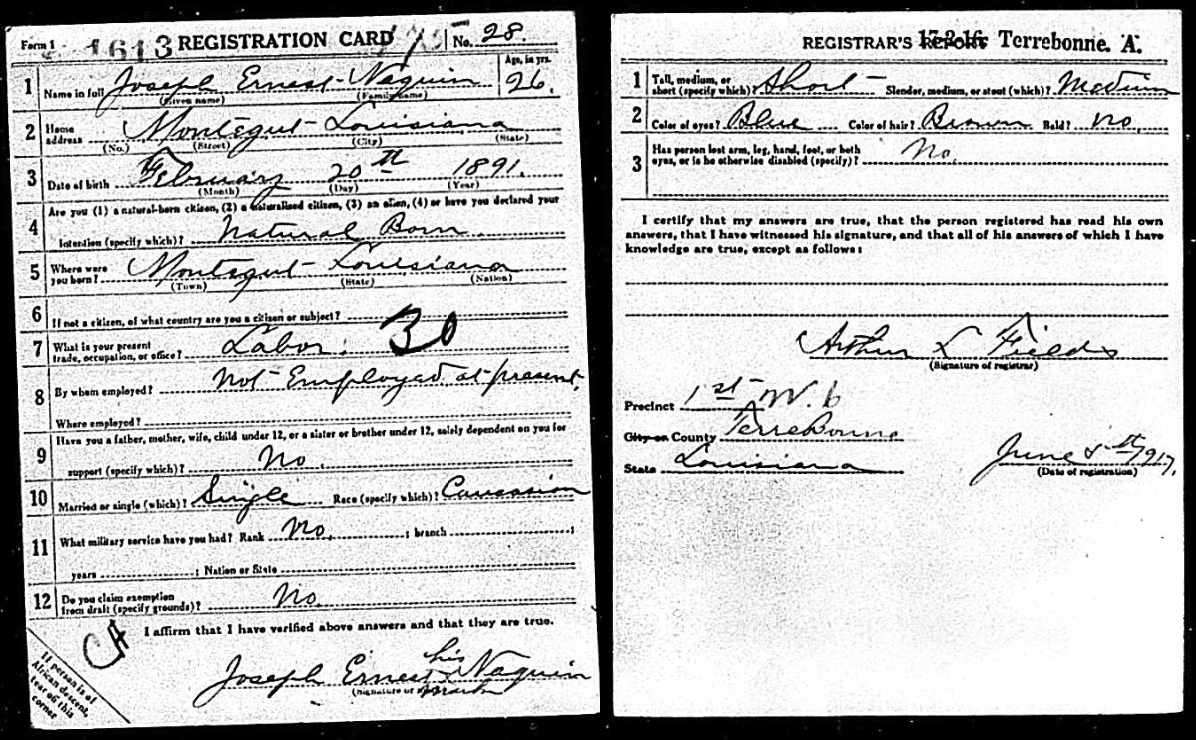 Form 1 1613 REGISTRATION CARD No. 28.
1 Name in full Joseph Ernest Naquin Age, in yrs. 26.
(Given name) (Family name)
2 Home address Montegut Louisiana
(No.) (Street) (City) (State)
3 Date of birth February 20th 1891.
(Month) (Day) (Year)
4 Are you (1) a natural-born citizen, (2) a naturalized citizen, (3) an alien, (4) or have you declared your
intention (specify which)? Natural Born.
5 Where were you born? Montegut Louisiana
(Town) (State) (Nation)
6 If not a citizen, of what country are you a citizen or subject?
7 What is your present trade, occupation, or office? Labor. 30
8 By whom employed? Not Employed at present.
Where employed?
9 Have you a father, mother, wife, child under 12, or a sister or brother under 12, solely dependent on you for
support (specify which)? No.
10 Married or single (which)? Single Race (specify which)? Caucasion
11 What military service have you had? Rank No. ; branch ;
years ; Nation or State
12 Do you claim exemption from draft (specify grounds)? No.
I affirm that I have verified above answers and that they are true.
his
Joseph Ernest x Naquin
(Signature or mark) mark
If person is of
African descent,
tear off this
corner
REGISTRAR'S REPORT 17-3-16 Terrebonne. A.
1 Tall, medium, or short (specify which)? Short Slender, medium, or stout (which)? Medium
2 Color of eyes? Blue Color of hair? Brown Bald? no.
3 Has person lost arm, leg, hand, foot, or both
eyes, or is he otherwise disabled (specify)? No.
I certify that my answers are true, that the person registered has read his own
answers, that I have witnessed his signature, and that all of his answers of which I have
knowledge are true, except as follows:
Arthur L Fields
(Signature of registrar)
Precinct 1st W. 6
City or County TerreBonne
State Louisiana
June 5th 1917.
(Date of registration)